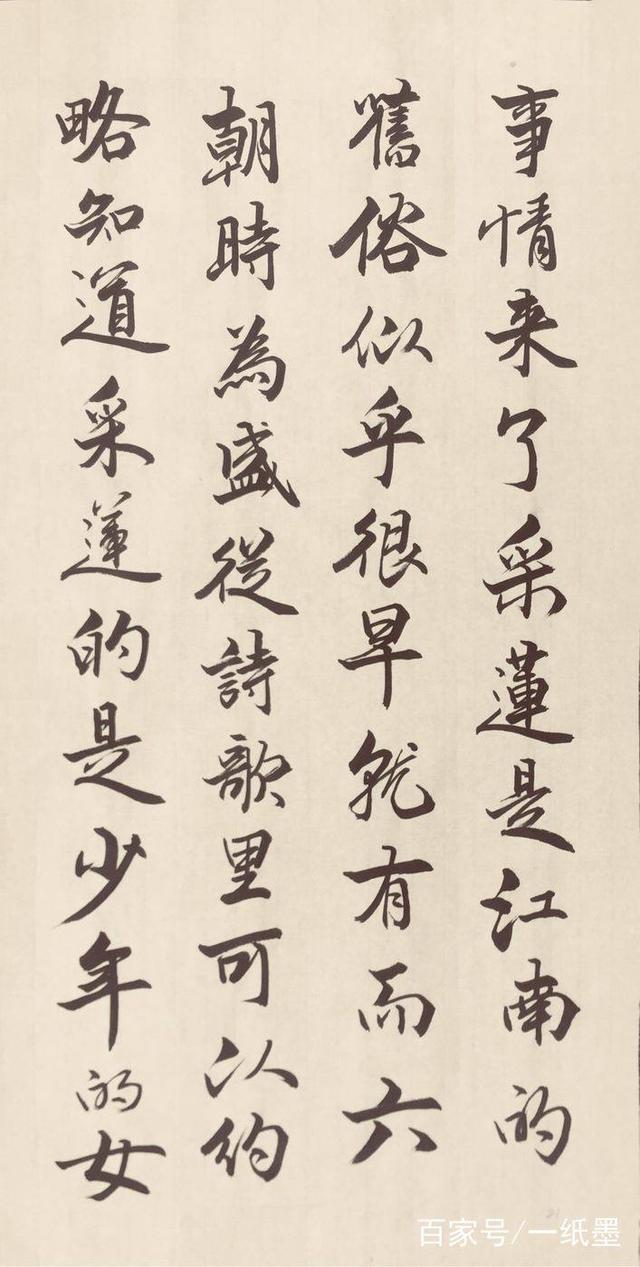 事情来了采蓮是江南的
舊俗似乎很早就有而六
朝時為盛從詩歌里可以約
略知道采蓮的是少年的女
百家号/一纸墨